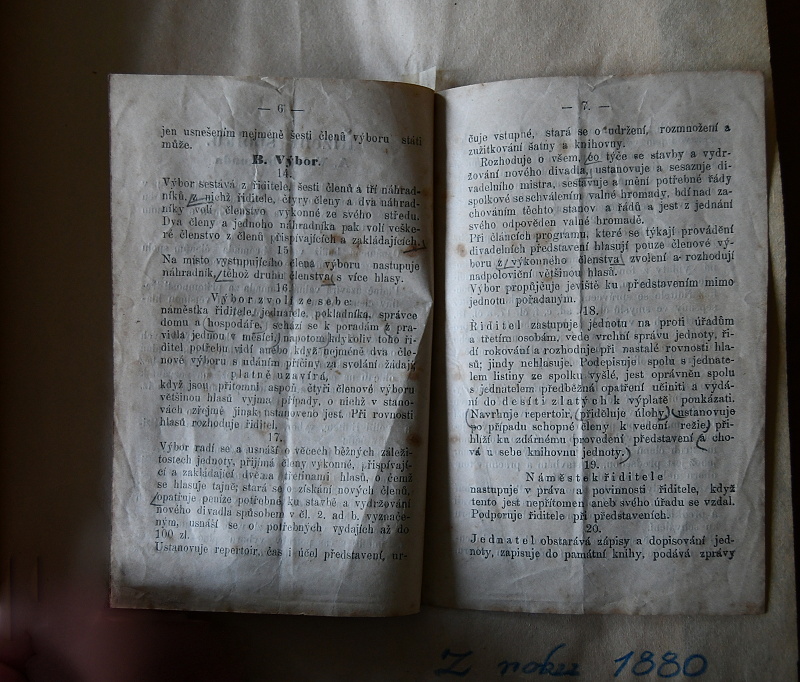 — 6 —
jen usnešením nejméně šesti členů výboru státi
může.
B. Výbor.
14.
Výbor sestává z řiditele, šesti členů a tří náhrad-
níků, z nichž řiditele, čtyry členy a dva náhrad-
níky volí členstvo výkonné ze svého středu.
Dva členy a jednoho náhradníka pak volí veške-
ré členstvo z členů přispívajících a zakládajících.
15.
Na místo vystupujícího člena výboru nastupuje
náhradník, téhož druhu členstva s více hlasy.
16.
Výbor zvolí ze sebe:
náměstka řiditele, jednatele, pokladníka, správce
domu a hospodáře, schází se k poradám z pra-
vidla jednou v měsíci, napotom kdykoliv toho ři-
ditel potřebu vidí anebo když nejméně dva čle-
nové výboru s udáním příčiny za svolání žádají,
platně uzavírá,
když jsou přítomni aspoň čtyři členové výboru
většinou hlasů vyjma případy, o nichž v stano-
vách zřejmě jinak ustanoveno jest. Při rovnosti
hlasů rozhoduje řiditel.
17.
Výbor radí se a usnáší o věcech běžných záleži-
tostech jednoty, přijímá členy výkonné, přispívají-
cí a zakládající dvěma třetinami hlasů, o čemž
se hlasuje tajně; stará se o získání nových členů,
opatřuje peníze potřebné ku stavbě a vydržování
nového divadla spůsobem v čl. 2. ad b. vyznače-
ným, usnáší se o potřebných vydajích až do
100 zl.
Ustanovuje repertoir, čas i účel představení, ur-
— 7. —
čuje vstupné, stará se o udržení, rozmnožení a
zužitkování šatny a knihovny.
Rozhoduje o všem, co týče se stavby a vydr-
žování nového divadla, ustanovuje a sesazuje di-
vadelního mistra, sestavuje a mění potřebné řády
spolkové se schválením valné hromady, bdí nad za-
chováním těchto stanov a řádů a jest z jednání
svého odpověden valné hromadě.
Při článcích programu, které se týkají provádění
divadelních představení hlasují pouze členové vý-
boru z výkonného členstva zvolení a rozhodují
nadpoloviční většinou hlasů.
Výbor propůjčuje jeviště ku představením mimo
jednotu pořádaným.
18.
Řiditel zastupuje jednotu na proti úřadům
a třetím osobám, vede vrchní správu jednoty, ří-
dí rokování a rozhoduje při nastalé rovnosti hla-
sů; jindy nehlasuje. Podepisuje spolu s jednate-
lem listiny ze spolku vyšlé, jest oprávněn spolu
s jednatelem předběžná opatření učiniti a vydá-
ní do desíti zlatých k výplatě poukázati.
Navrhuje repertoir, přiděluje úlohy, ustanovuje
po případu schopné členy k vedení režie, při-
hlíží ku zdárnému provedení představení a cho-
vá u sebe knihovnu jednoty.
19.
Náměstek řiditele
nastupuje v práva a povinnosti řiditele, když
tento jest nepřítomen aneb svého úřadu se vzdal.
Podporuje řiditele při představeních.
20.
Jednatel obstarává zápisy a dopisování jed-
noty, zapisuje do památní knihy, podává zprávy
Z roku 1880